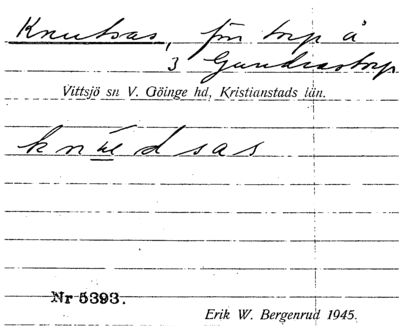 Knutsas, förr torp å
3 Gundrastorp
Vittsjö sn V. Göinge hd, Kristianstads län.
knu̲edsas
Nr 5393.
Erik W. Bergenrud 1945.